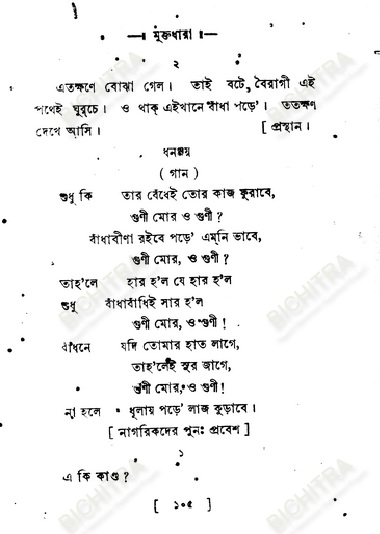 —॥ মুক্তধারা ॥—
২
এতক্ষণে বোঝা গেল। তাই বটে, বৈরাগী এই
পথেই ঘুরচে। ও থাক্ এইখানে বাঁধা পড়ে'। ততক্ষণ
দেখে আসি। [ প্রস্থান।
ধনঞ্জয়
( গান )
শুধু কি তার বেঁধেই তোর কাজ ফুরাবে,
গুণী মোর ও গুণী ?
বাঁধাবীণা রইবে পড়ে' এম্‌নি ভাবে,
গুণী মোর, ও গুণী ?
তাহ'লে হার হ'ল যে হার হ'ল
শুধু বাঁধাবাঁধিই সার হ'ল
গুণী মোর, ও গুণী !
বাঁধনে যদি তোমার হাত লাগে,
তাহ'লেই সুর জাগে,
গুণী মোর, ও গুণী!
না হলে ধূলায় পড়ে' লাজ কুড়াবে।
[ নাগরিকদের পুনঃ প্রবেশ ]
১
এ কি কাণ্ড ?
[ ১০৫ ]
BICHITRA
BICHITRA
BICHITRA
BICHITRA
BICHITRA
BICHITRA